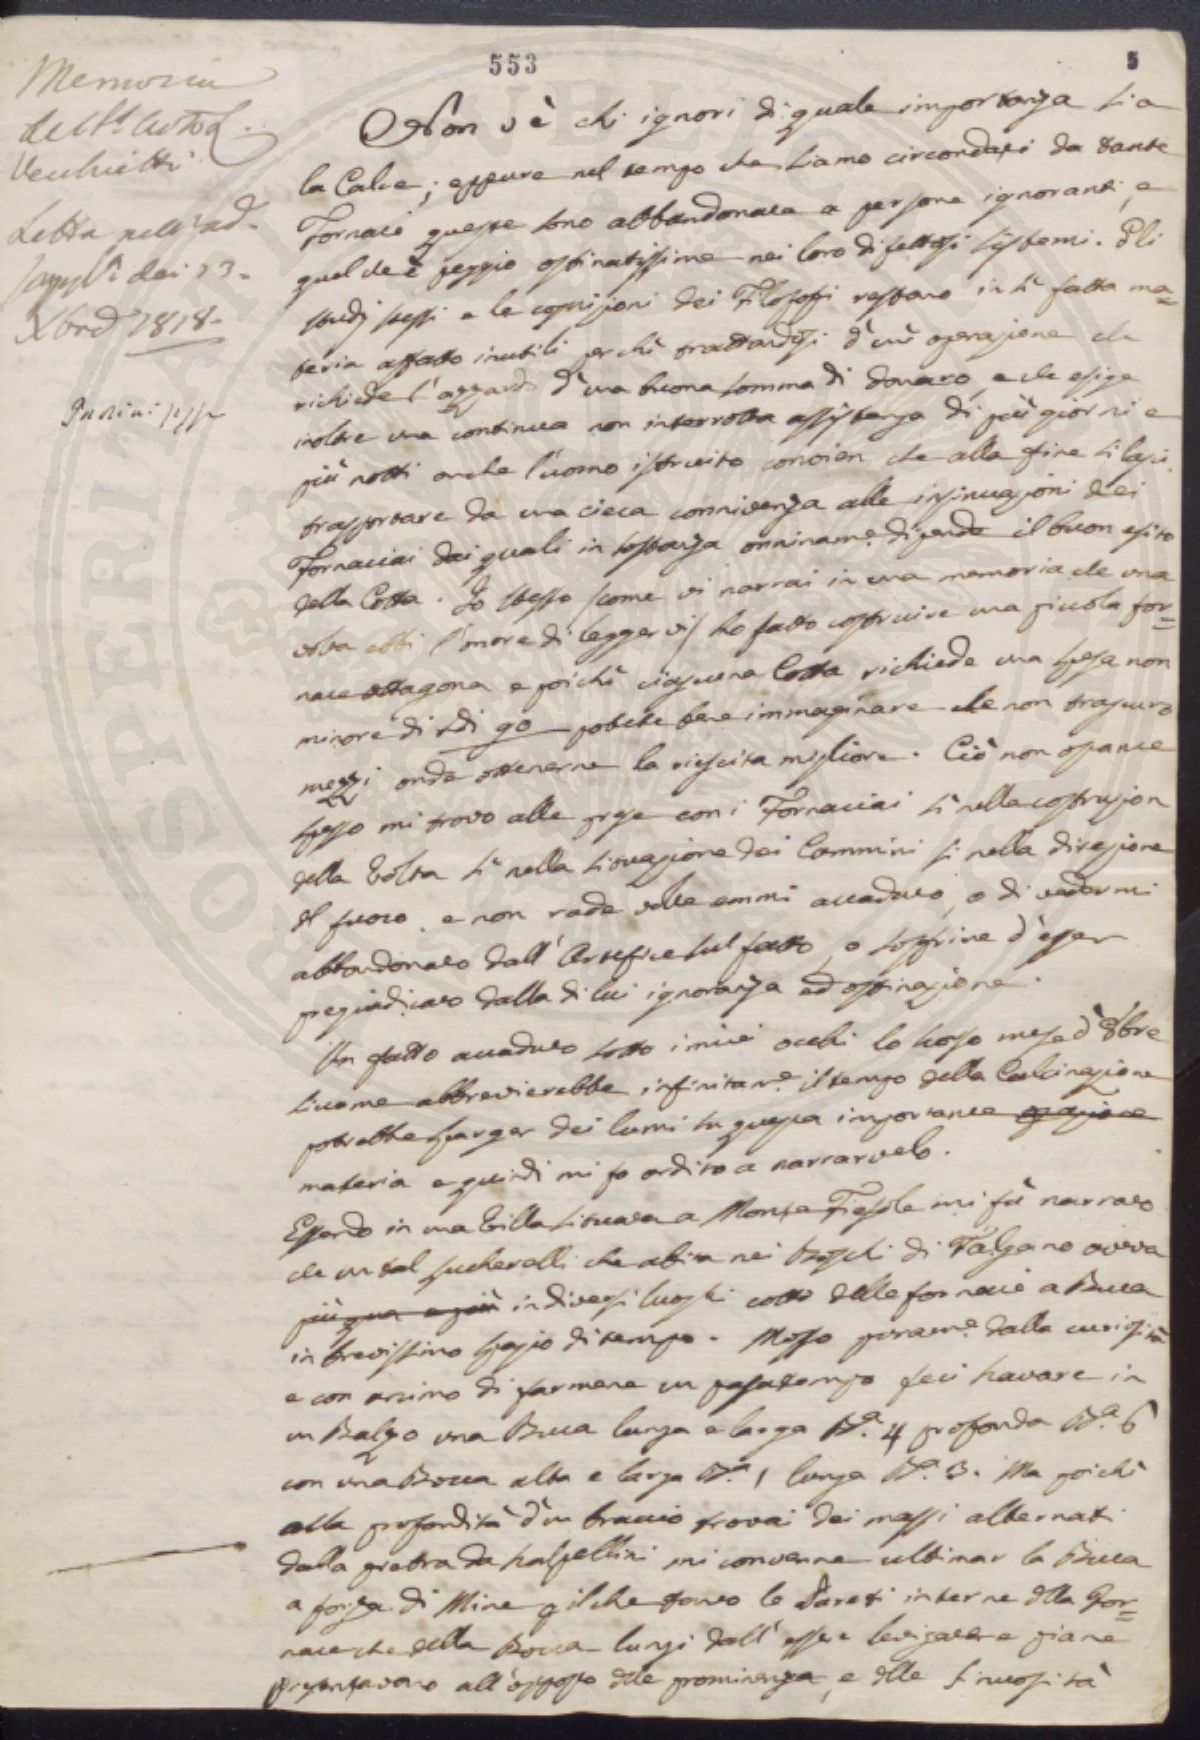 553
5
Memoria
del Sr. Autod.
Vecchietti
Letta nell' ad.
dei 13.
Xbre 1818.
Non v'è chi ignori di quale importanza sia
la Calce; eppure nel tempo che siamo circondati da tante
Fornaci queste sono abbandonate a persone ignoranti, e
quel ch'è peggio ostinatissime nei loro difettosi sistemi. Gli
studj stessi e le cognizioni dei Filosofi restano in sì fatta ma=
teria affatto inutili perchè trattandosi d'un' operazione che
richiede l'azzardo d'una buona somma di danaro, e che esige
inoltre una continua non interrotta assistenza di più giorni e
più notti anche l'uomo istruito convien che alla fine si lasci
trasportare da una cieca connivenza alle insinuazioni dei
Fornaciai dai quali in sostanza onninamᵉ dipende il buon esito
della Cotta. Io stesso (come vi narrai in una memoria che una
volta ebbi l'onore di leggervi) ho fatto costruire una piccola for=
nace ottagona e poichè ciascuna Cotta richiede una spesa non
minore di sdi 90 potete bene immaginare che non trascuro
mezzi onde ottenerne la riescita migliore. Ciò non ostante
spesso mi trovo alle prese con i Fornaciai sì nella costruzion
della Volta sì nella situazione dei Cammini sì nella direzione
del fuoco, e non rade volte emmi accaduto, o di vedermi
abbandonato dall' Artefice sul fatto, o soffrire d'esser
pregiudicato dalla di lui ignoranza ed ostinazione.
Un fatto accaduto sotto i miei occhi lo scorso mese d' 8bre
siccome abbrevierebbe infinitamᵉ il tempo della Calcinazione
potrebbe sparger dei lumi su questa importante
materia e quindi mi fo ardito a narrarvelo.
Essendo in una Villa situata a Monte Fiesole mi fù narrato
che un tal Sucherelli che abita nei Boschi di Falgano aveva
in diversi luoghi cotto delle fornaci a Buca
in brevissimo spazio di tempo. Mosso puramᵉ dalla curiosità
e con animo di farmene un passatempo feci scavare in
un Balzo una Buca lunga e larga Bᵃ. 4 profonda Bᵃ. 6
con una Bocca alta e larga Bᵃ. 1 lunga Bᵃ. 3. Ma poichè
alla profondità d'un braccio trovai dei massi alternati
dalla pietra da scalpellini mi convenne ultimar la Buca
a forza di Mine il che tanto le Pareti interne della For=
nace che della Bocca lungi dall' essere levigate e piane
presentavano all'opposto delle prominenze, e delle sinuosità